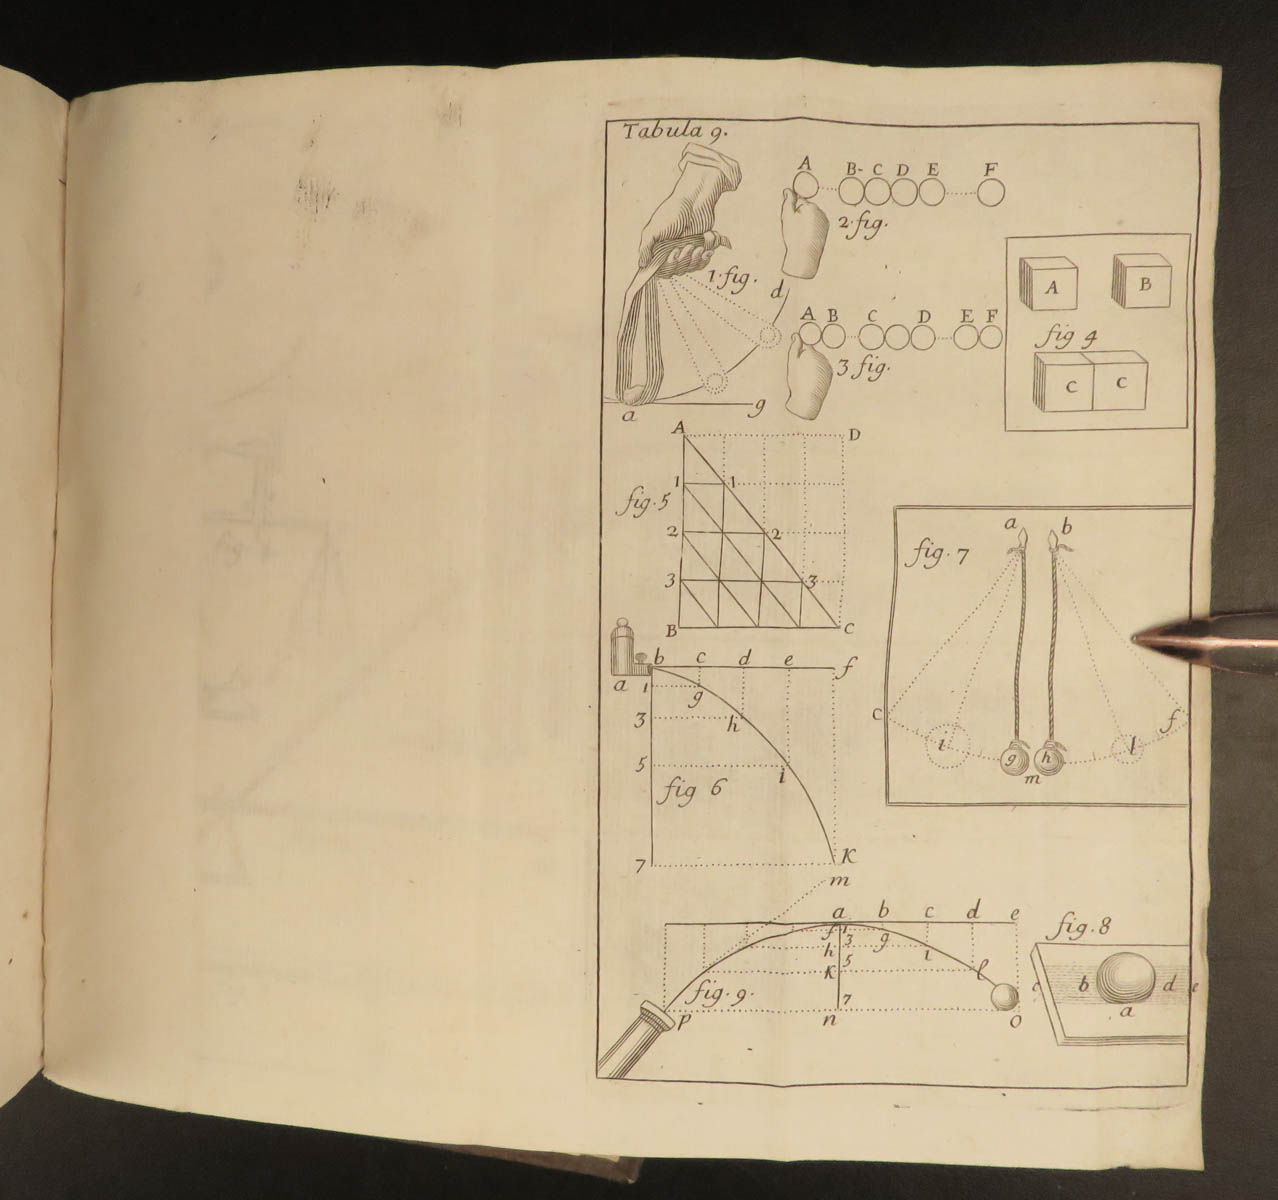 Tabula 9.
A B- C D E F
2·fig.
1·fig.
d
a g
A B C D E F
3 fig.
A B
fig 4
C C
A D
fig.5
1 1
2 2
3 3
B C
a b c d e f
1 g
3 h
5 i
fig 6
7 K
m
fig.7
a b
c i g h l f
m
a b c d e
f 1 g
h 3 i
K 5 l
fig.9.
7
P n O
fig.8
c b d e
a